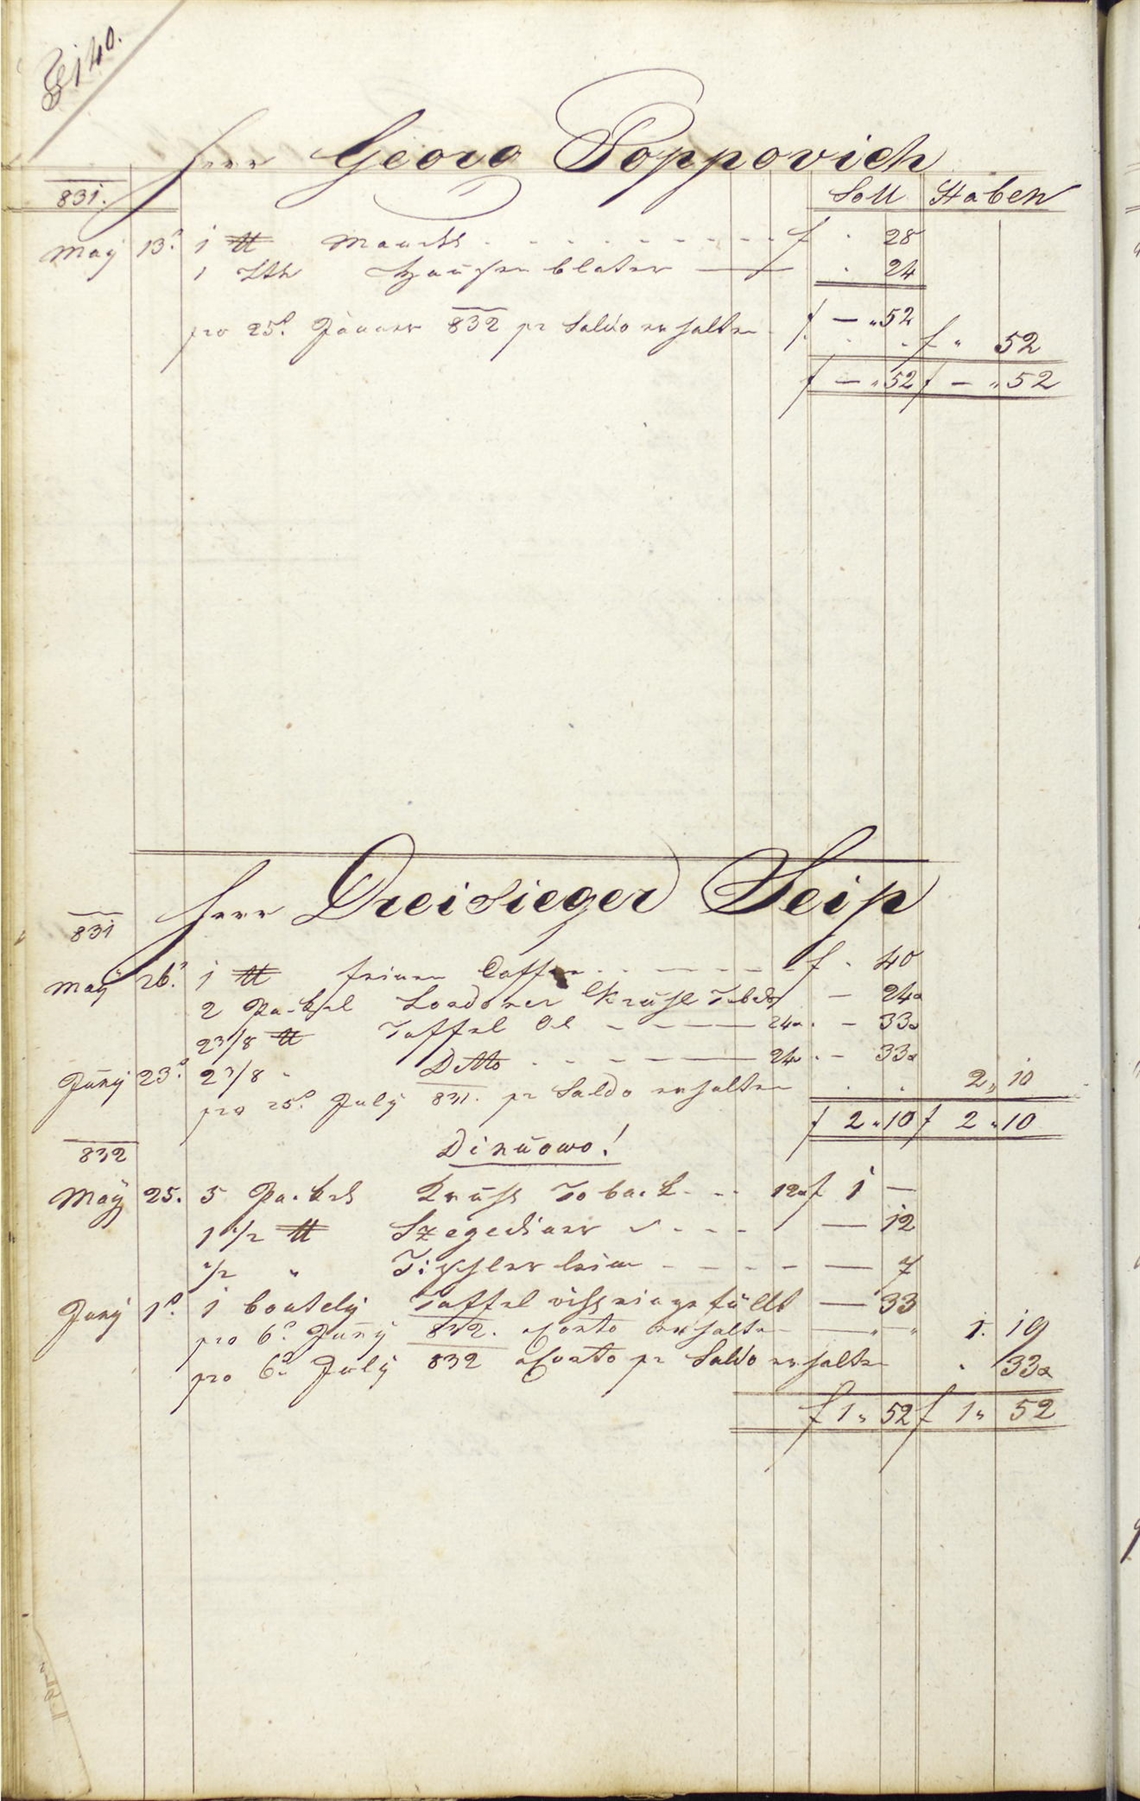 140.
Herr Georg Poppovich
831. Soll Haben
May 13. 1 ℔ f . 28
1 Lth Hausen blater — . 24
f — „ 52
pro 25. Jänner 832 pr Saldo erhalten . . f „ 52
f — „ 52 f — „ 52
Herr Dreisieger Seip
831
May 26. 1 ℔ feinen Caffee f . 40
2 Packel Tabak — 24
2 1/8 ℔ Taffel Öl 24 . — 33
Juny 23. 2 1/8 „ Ditto 24 . — 33
pro 25. July 831. pr Saldo erhalten . . 2 „ 10
f 2 „ 10 f 2 „ 10
832 Dinuovo!
May 25. 5 Packel Toback 12 f 1 —
1 1/2 ℔ Szegediner — 12
1/2 „ Tischler leim — 7
Juny 1. 1 boutely Taffel öhl eingefüllt — 33
pro 6. Juny 832. aConto erhalten — „ „ 1. 19
pro 6. July 832 aConto pr Saldo erhalten „ 33
f 1 „ 52 f 1 „ 52